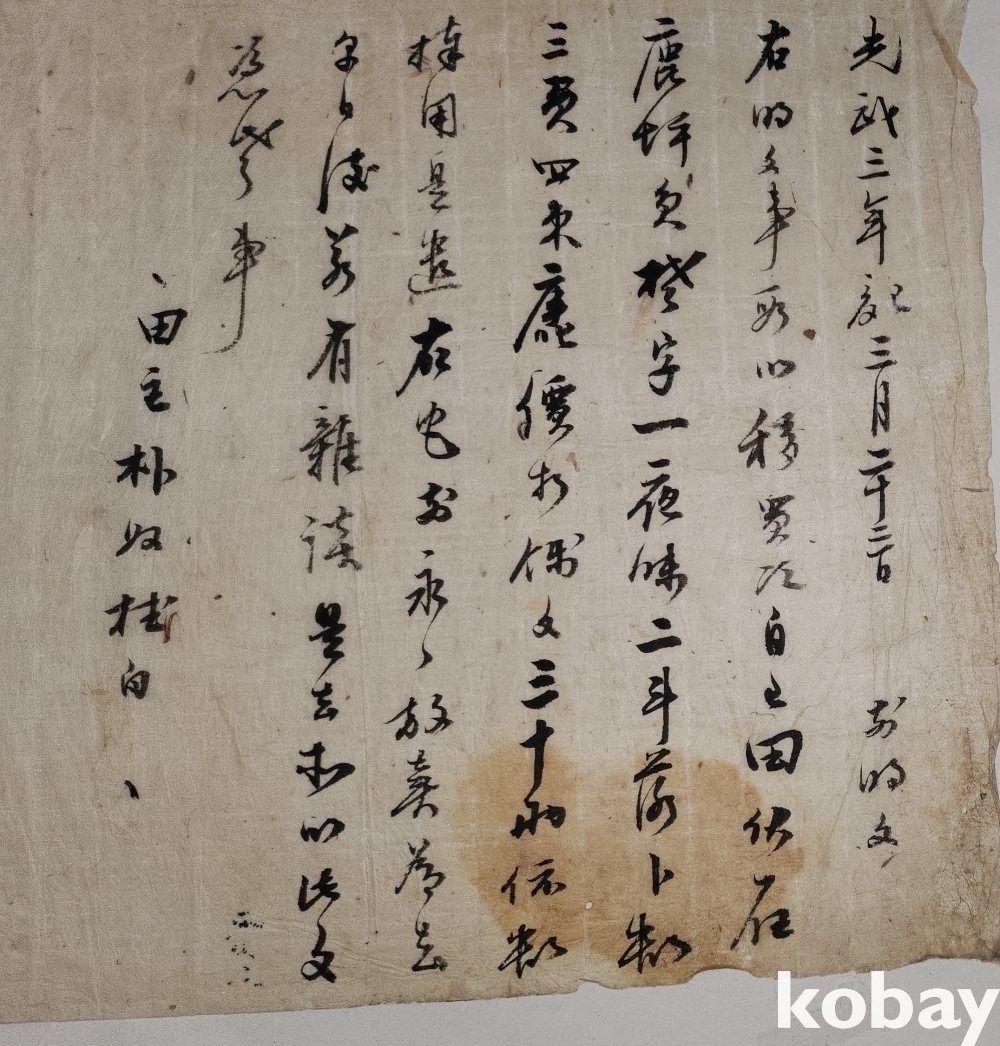 光武三年己亥三月二十三日 前明文
右明文事段以移買次自己田伏在
鹿坪員楚字一夜味二斗落卜數
三負四束庫價折價文三十兩依數
捧用是遣右宅前永永放賣爲去
乎日後若有雜談是去等以此文
憑考事
田主朴奴桂白
kobay